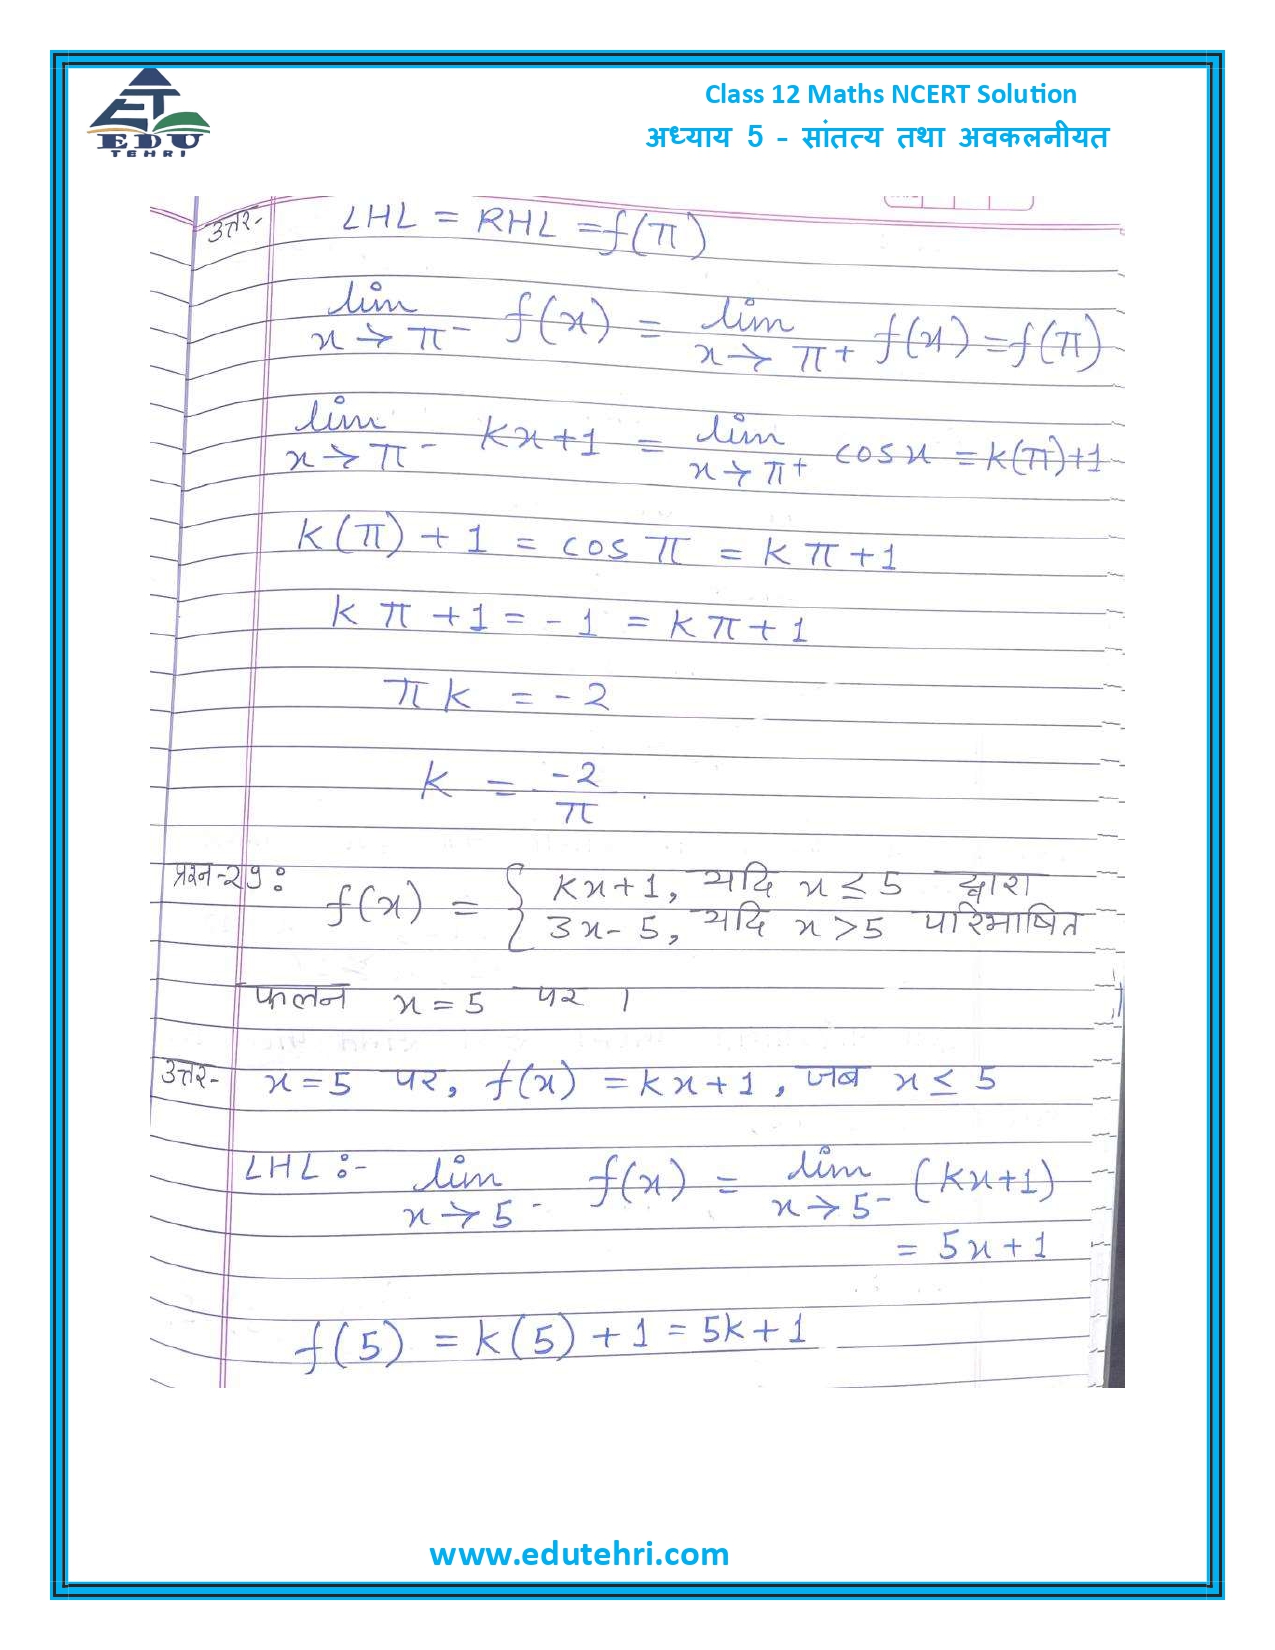 EDU
TEHRI
Class 12 Maths NCERT Solution
अध्याय 5 - सांतत्य तथा अवकलनीयत
उत्तर- LHL = RHL = f(π)
lim x→π⁻ f(x) = lim x→π⁺ f(x) = f(π)
lim x→π⁻ kx+1 = lim x→π⁺ cos x = k(π)+1
k(π)+1 = cos π = kπ+1
kπ+1 = -1 = kπ+1
πk = -2
k = -2/π
प्रश्न-29: f(x) = { kx+1, यदि x ≤ 5 द्वारा
3x-5, यदि x >5 परिभाषित
फलन x=5 पर ।
उत्तर- x=5 पर, f(x) = kx+1, जब x ≤ 5
LHL:- lim x→5⁻ f(x) = lim x→5⁻ (kx+1)
= 5x+1
f(5) = k(5)+1 = 5k+1
www.edutehri.com